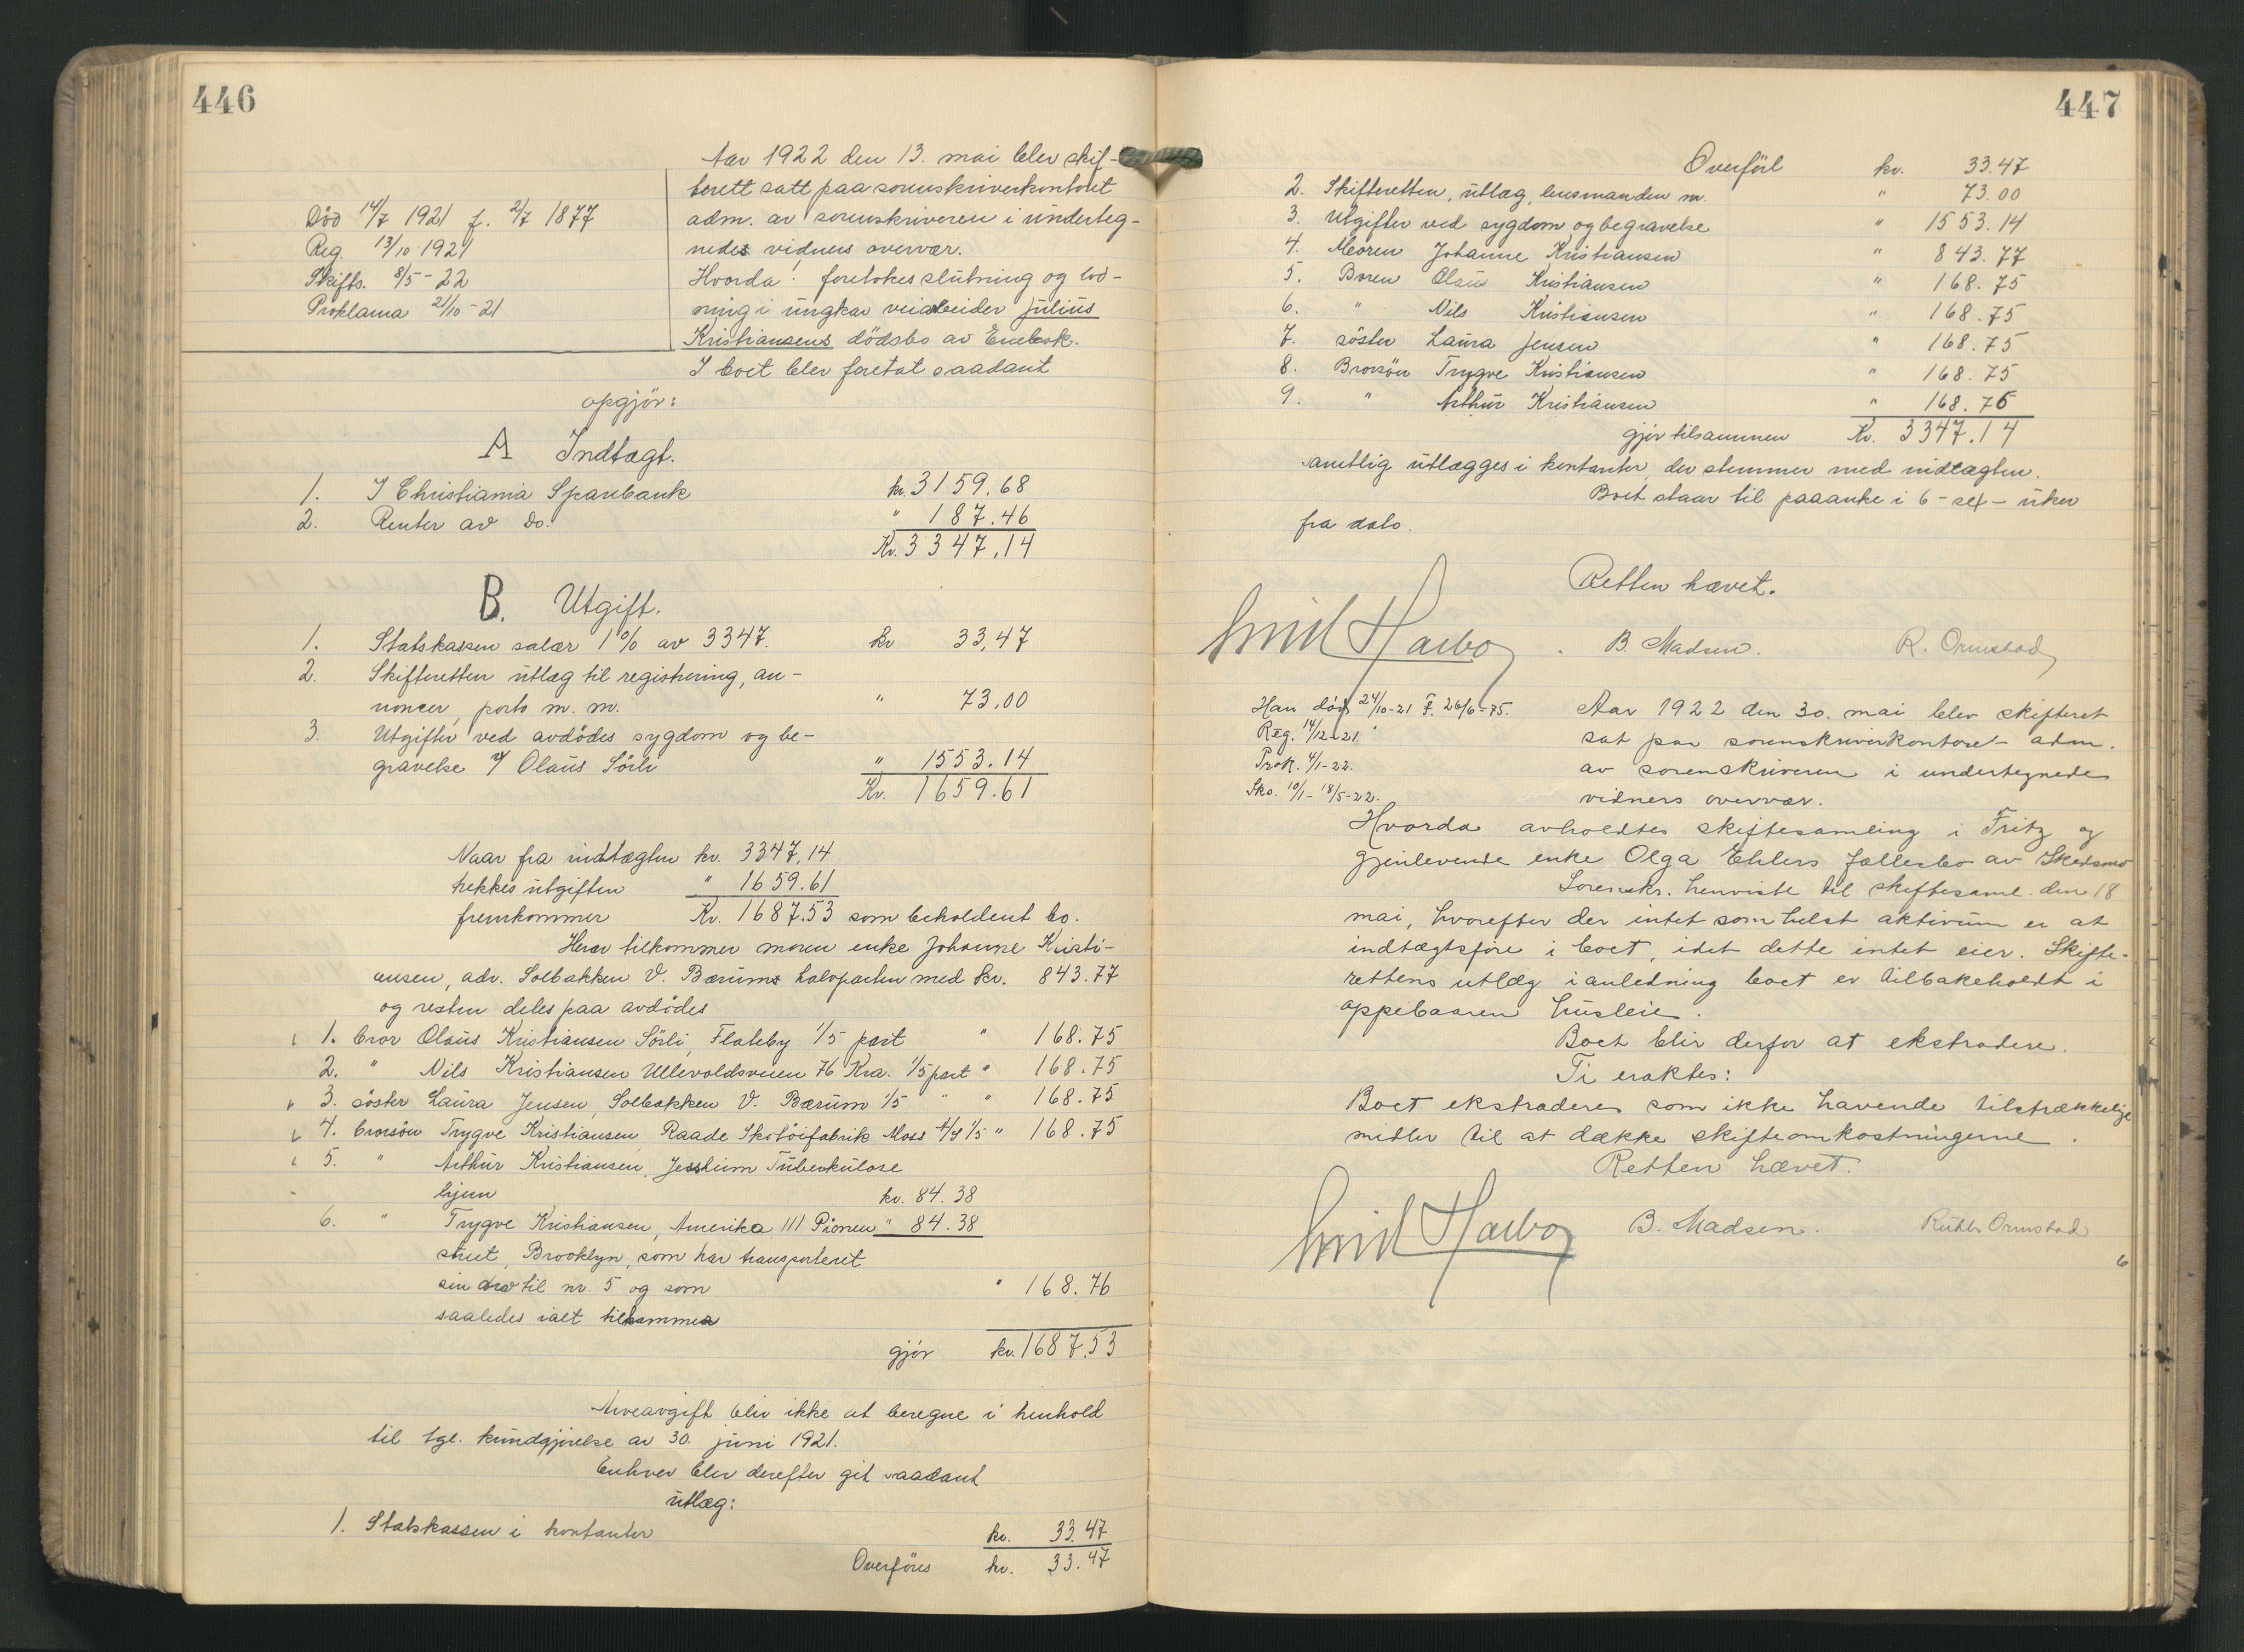 446
Død 14/7 1921 f. 2/7 1877
Reg. 13/10 1921
Skifts. 8/5 - 22
Proklama 21/10 - 21
Aar 1922 den 13. mai blev skif-
terett satt paa sorenskriverkontoret
adm. av sorenskriveren i underteg-
nedes vidners overvær.
Hvorda! foretokes slutning og lod-
ning i ungkar veiarbeider Julius
Kristiansens dödsbo av Enebak.
I boet blev foretat saadant
opgjör:
A Indtægt.
1. I Christiania Sparebank kr. 3159.68
2. Renter av do. " 187.46
Kr. 3347,14
B. Utgift.
1. Statskassen salær 1% av 3347. kr 33,47
2. Skifteretten utlæg til registrering, an-
noncer, porto m. m. " 73,00
3. Utgifter ved avdödes sygdom og be-
gravelse v/ Olaus Sörli " 1553.14
Kr. 1659.61
Naar fra indtægten kr. 3347,14
trekkes utgiften " 1659.61
fremkommer Kr. 1687.53 som beholdent bo.
Herav tilkommer moren enke Johanne Kristi-
ansen, adr. Solbakken V. Bærums halvparten med kr. 843.77
og resten deles paa avdödes
1. bror Olaus Kristiansen Sörli, Flateby 1/5 part " 168.75
2. " Nils Kristiansen Ullevoldsveien 76 Kra. 1/5 part " 168.75
3. söster Laura Jensen, Solbakken V. Bærum 1/5 " " 168.75
4. brorsön Trygve Kristiansen, Raade Skotöifabrik Moss 1/5 " 168.75
5. " Arthur Kristiansen, Jessheim Tuberkulose
hjem kr. 84.38
6. " Trygve Kristiansen, Amerika 111 Pionen " 84.38
street, Brooklyn, som har transporteret
sin arv til nr. 5 og som " 168.76
saaledes ialt tilkommer
gjör kr. 1687.53
Arveavgift blir ikke at beregne i henhold
til tgl. kundgjørelse av 30. juni 1921.
Enhver blev derefter git saadant
utlæg:
1. Statskassen i kontanter kr. 33.47
Overföres kr. 33.47
447
Overfört kr. 33.47
2. Skifteretten, utlæg, lensmanden m. " 73.00
3. Utgifter ved sygdom og begravelse " 1553.14
4. Moren Johanne Kristiansen " 843.77
5. Broren Olaus Kristiansen " 168.75
6. " Nils Kristiansen " 168.75
7. söster Laura Jensen " 168.75
8. Brorsön Trygve Kristiansen " 168.75
9. " Arthur Kristiansen " 168.76
gjör tilsammen Kr. 3347.14
samtlig utlægges i kontanter, der stemmer med indtægten.
Boet staar til paaanke i 6 - sex - uker
fra dato.
Retten hævet.
Emil Harbo. B. Madsen. R. Ormstad
Han död 24/10-21 F. 26/6-75.
Reg. 14/12-21
Prok. 4/1-22.
Sks. 10/1 - 18/5-22.
Aar 1922 den 30. mai blev skifteret
sat paa sorenskriverkontoret adm.
av sorenskriveren i undertegnedes
vidners overvær.
Hvorda avholdtes skiftesamling i Fritz og
gjenlevende enke Olga Ehlers fællesbo av Skedsmo
Sorenskr. henviste til skiftesaml. den 18
mai, hvorefter der intet som helst aktivum er at
indtægtsføre i boet, idet dette intet eier. Skifte-
rettens utlæg i anledning boet er tilbakeholdt i
oppebaaren husleie.
Boet blir derfor at ekstradere.
Ti eraktes:
Boet ekstraderes som ikke havende tilstrækkelige
midler til at dække skifteomkostningerne.
Retten hævet.
Emil Harbo B. Madsen. Ruth Ormstad
6